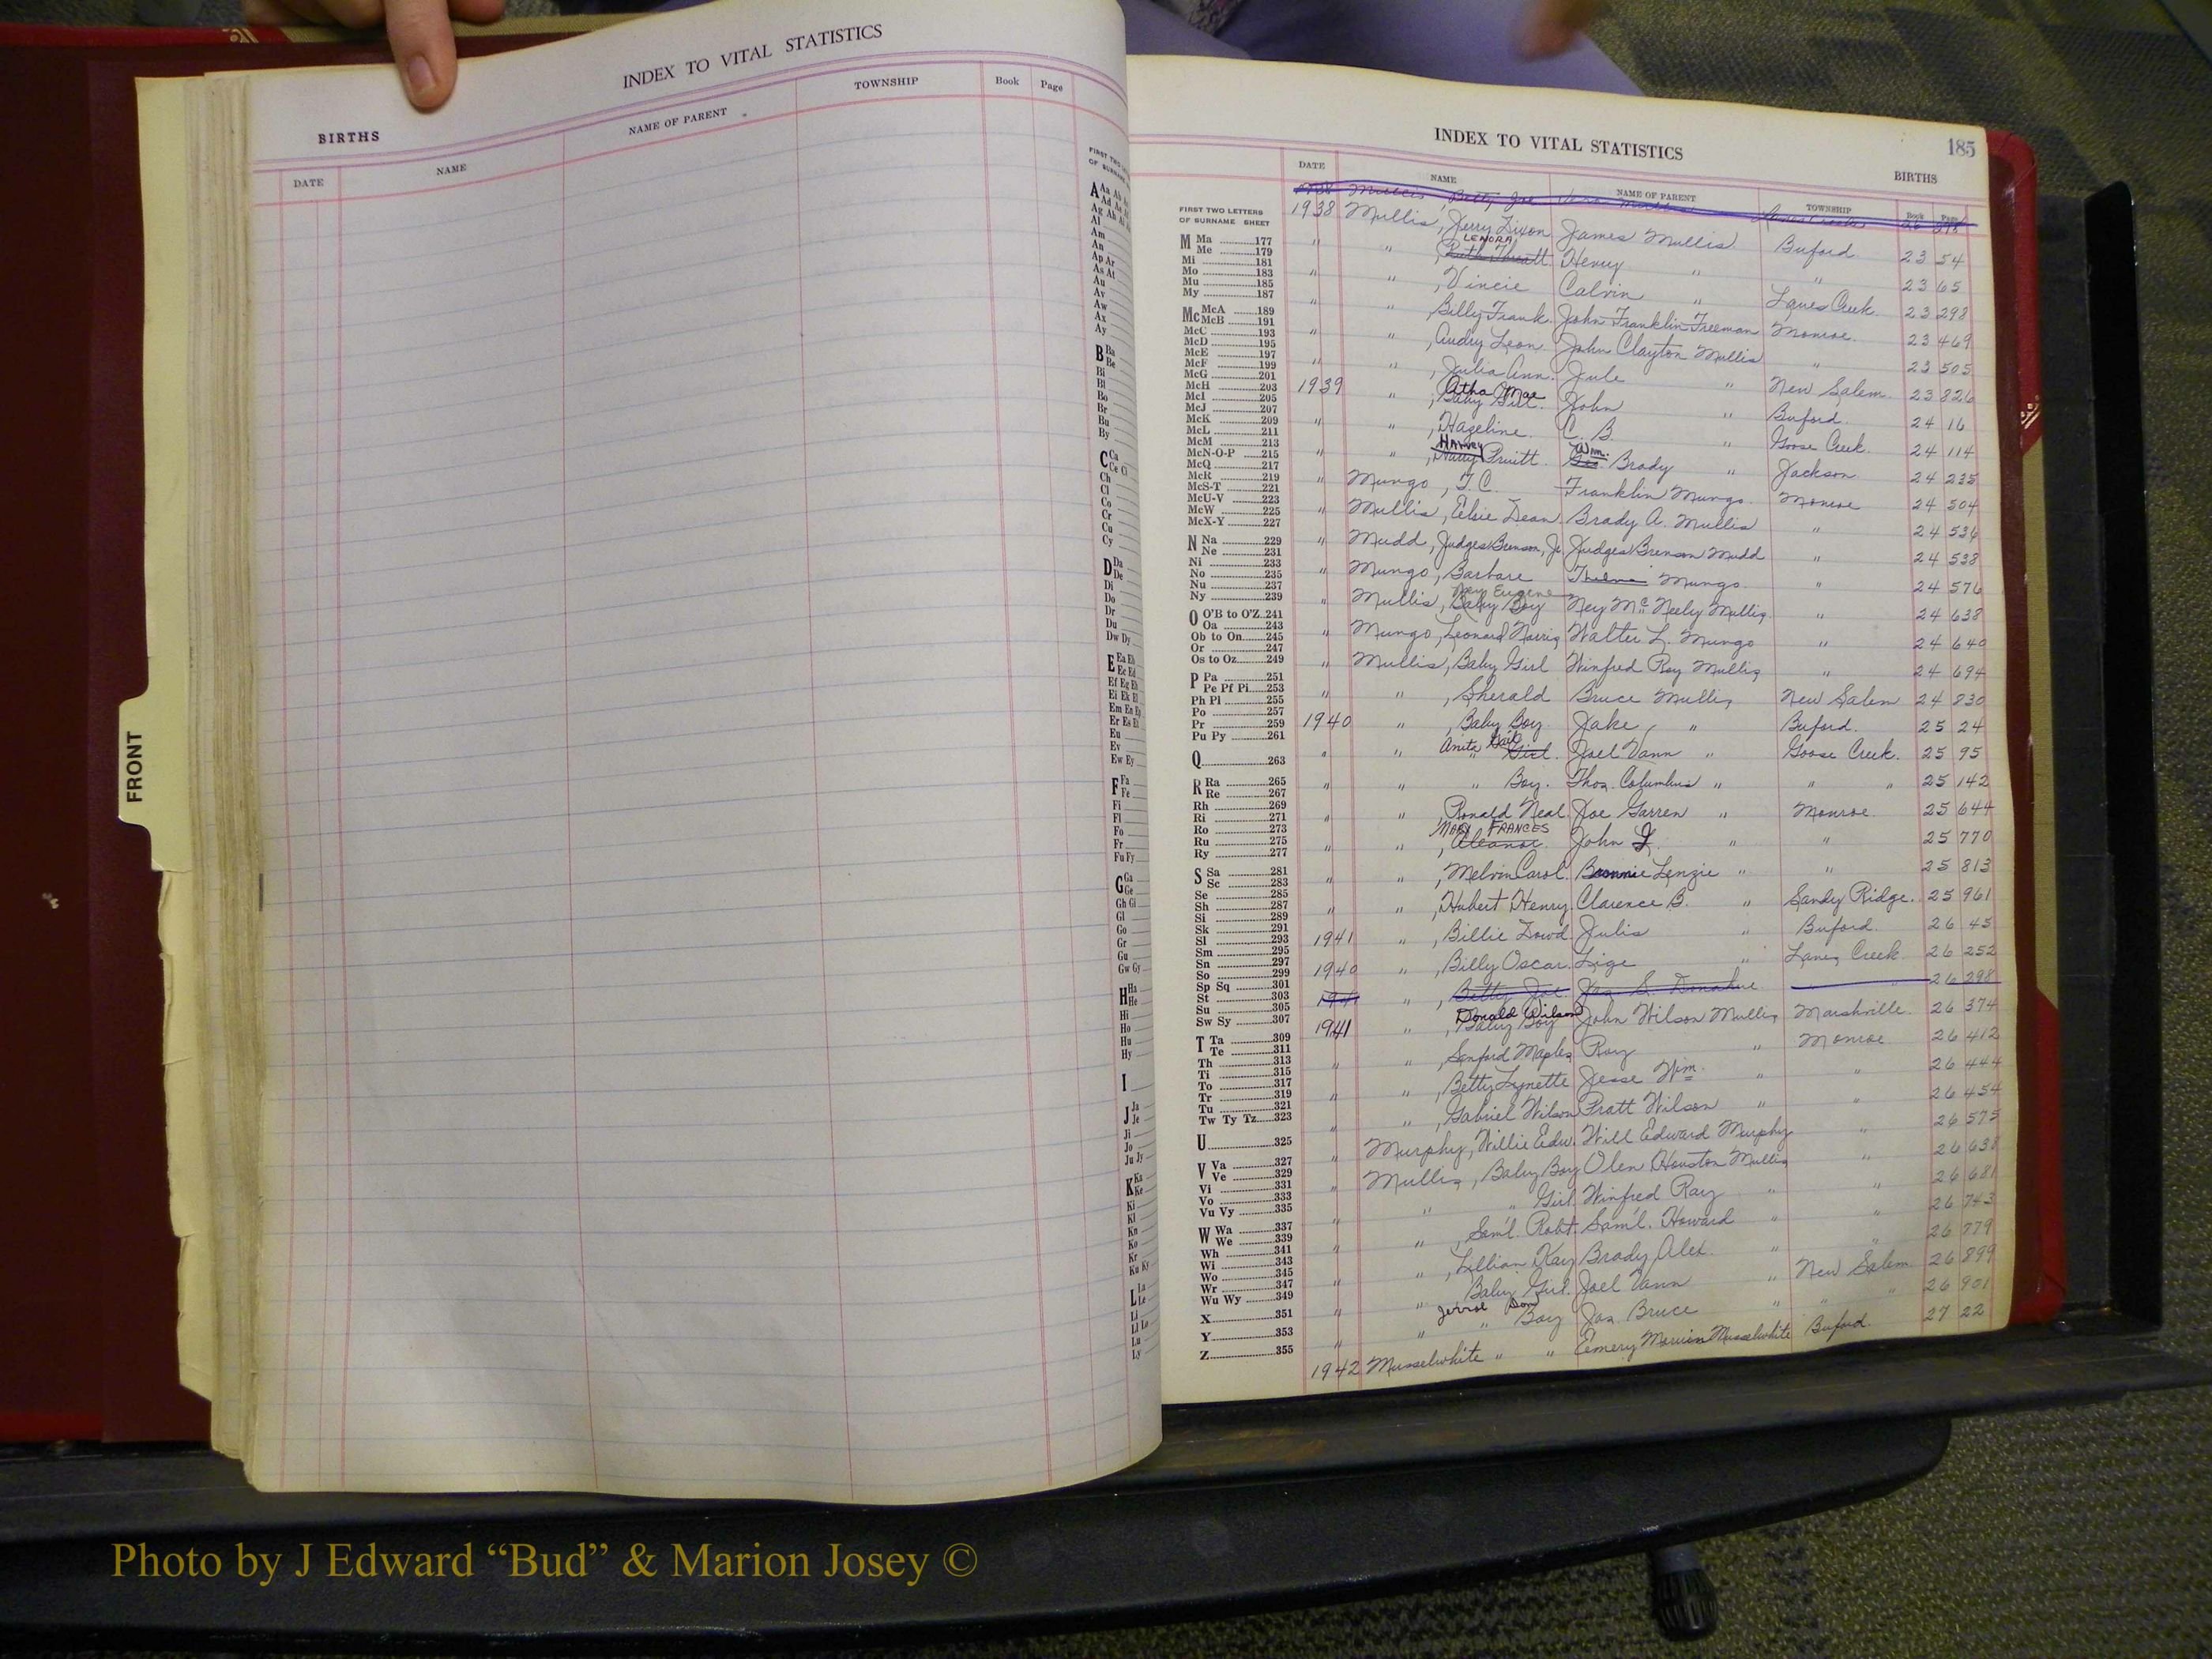 INDEX TO VITAL STATISTICS
BIRTHS
DATE NAME NAME OF PARENT TOWNSHIP Book Page
FRONT
FIRST TWO
OF SURNAME
A Aa Ab
Ag Ah
Al
Am
An
Ap Ar
As At
Au
Av
Aw
Ax
Ay
B Ba
Be
Bi
Bl
Bo
Br
Bu
By
C Ca
Ce Ci
Ch
Cl
Co
Cr
Cu
Cy
D Da
De
Di
Do
Dr
Du
Dw Dy
E Ea Eb
Ec Ed
Ef Eg
Ei Ek
Em En
Er Es
Eu
Ev
Ew Ey
F Fa
Fe
Fi
Fl
Fo
Fr
Fu Fy
G Ga
Ge
Gh Gi
Gl
Go
Gr
Gu
Gw Gy
H Ha
He
Hi
Ho
Hu
Hy
I
J Ja
Je
Ji
Jo
Ju Jy
K Ka
Ke
Ki
Kl
Kn
Ko
Kr
Ku Ky
L La
Le
Li
Ll Lo
Lu
Ly
INDEX TO VITAL STATISTICS 185
BIRTHS
DATE NAME NAME OF PARENT TOWNSHIP Book Page
FIRST TWO LETTERS
OF SURNAME SHEET
M Ma 177
Me 179
Mi 181
Mo 183
Mu 185
My 187
Mc McA 189
McB 191
McC 193
McD 195
McE 197
McF 199
McG 201
McH 203
McI 205
McJ 207
McK 209
McL 211
McM 213
McN-O-P 215
McQ 217
McR 219
McS-T 221
McU-V 223
McW 225
McX-Y 227
N Na 229
Ne 231
Ni 233
No 235
Nu 237
Ny 239
O O'B to O'Z 241
Oa 243
Ob to On 245
Or 247
Os to Oz 249
P Pa 251
Pe Pf Pi 253
Ph Pl 255
Po 257
Pr 259
Pu Py 261
Q 263
R Ra 265
Re 267
Rh 269
Ri 271
Ro 273
Ru 275
Ry 277
S Sa 281
Sc 283
Se 285
Sh 287
Si 289
Sk 291
Sl 293
Sm 295
Sn 297
So 299
Sp Sq 301
St 303
Su 305
Sw Sy 307
T Ta 309
Te 311
Th 313
Ti 315
To 317
Tr 319
Tu 321
Tw Ty Tz 323
U 325
V Va 327
Ve 329
Vi 331
Vo 333
Vu Vy 335
W Wa 337
We 339
Wh 341
Wi 343
Wo 345
Wr 347
Wu Wy 349
X 351
Y 353
Z 355
Mullis, Betty Joe
1938 Mullis, Jerry Dixon James Mullis Buford 23 54
" " , LENORA Ruth Threatt Henry " " 23 65
" " , Vincie Calvin " Lanes Creek 23 298
" " Billy Frank John Franklin Freeman Monroe 23 469
" " , Audry Leon John Clayton Mullis " 23 505
" " , Julia Ann Jule " New Salem 23 826
1939 " , Atha Mae Baby Girl John " Buford 24 16
" " , Hazeline C. B. " Goose Creek 24 114
" " , HARVEY Pruitt Wm. Geo Brady " Jackson 24 235
" Mungo, T.C. Franklin Mungo Monroe 24 504
" Mullis, Elsie Dean Brady A. Mullis " 24 536
" Mudd, Judges Brenson, Jr. Judges Brenson Mudd " 24 538
" Mungo, Barbare Thelma Mungo " 24 576
" Mullis, Ney Eugene Baby Boy Ney Mc Neely Mullis " 24 638
" Mungo, Leonard Harris Walter L. Mungo " 24 640
" Mullis, Baby Girl Winfred Ray Mullis " 24 694
" " , Sherald Bruce Mullis New Salem 24 830
1940 " , Baby Boy Jake " Buford 25 24
" " Anita Gail " Girl Joel Vann " Goose Creek 25 95
" " " Boy Thos. Columbus " " " 25 142
" " , Ronald Neal Joe Garren " Monroe 25 644
" " , MARY FRANCES Aleanor John J. " " 25 770
" " , Melvin Carol Bonnie Lenzie " " 25 813
" " , Hubert Henry Clarence B. " Sandy Ridge 25 961
1941 " , Billie Dowd Julis " Buford 26 45
1940 " , Billy Oscar Lige " Lanes Creek 26 252
1941 " , Betty Joe Jas. S. Donahue " 26 298
1941 " , Donald Wilson Baby Boy John Wilson Mullis Marshville 26 374
" " , Sanford Maples Ray " Monroe 26 412
" " , Betty Lynette Jesse Wm. " " 26 444
" " , Gabriel Wilson Pratt Wilson " " 26 454
" Murphy, Willie Edw. Will Edward Murphy " 26 575
" Mullis, Baby Boy Olen Houston Mullis " 26 638
" " " Girl Winfred Ray " " 26 681
" " , Sam'l. Robt. Sam'l. Howard " " 26 743
" " , Lillian Kay Brady Alex. " " 26 779
" " Baby Girl Joel Vann " New Salem 26 899
" " Jerrol Don " Boy Jas. Bruce " " " 26 901
1942 Musselwhite " " Eemery Marvin Musselwhite Buford 27 22
Photo by J Edward “Bud” & Marion Josey ©